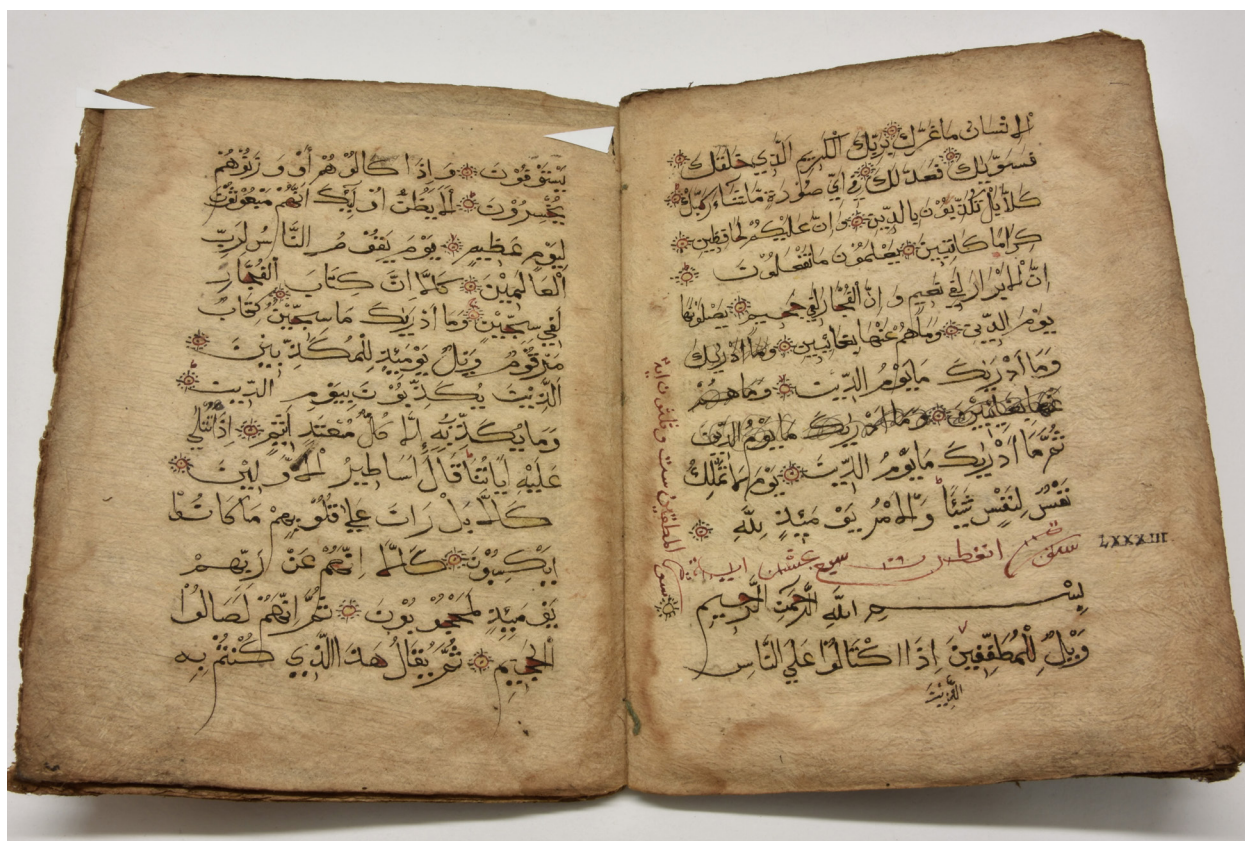 الإنسان ما غرّك بربّك الكريم الّذي خلقك
فسوّيك فعدلك في أيّ صورة مّا شاء ركّبك
كلاّ بل تكذّبون بالدّين وإنّ عليكم لحافظين
كراما كاتبين يعلمون ما تفعلون
إنّ الابرار لفي نعيم وإنّ الفجّار لفي جحيم يصلونها
يوم الدّين وما هم عنها بغائبين وما أدريك
وما أدريك ما يوم الدّين وما هم
عنها بغائبين وما أدريك ما يوم الدّين
ثمّ ما أدريك ما يوم الدّين يوم لا تملك
نفس لنفس شيئًا والامر يومئذ لله
سورة انفطرن ١٩ عشر اية
LXXXIII
بسم الله الرّحمن الرّحيم
ويل للمطفّفين إذا اكتالوا على النّاس
الّذين
سورة المطففين ست وثلثون اية
يستوفون وإذا كالوهم أو وزنوهم
يخسرون ألا يظنّ أوليك أنّهم مبعوثون
ليوم عظيم يوم يقوم النّاس لربّ
العالمين كلاّ انّ كتاب الفجّار
لفي سجّين وما أدريك ما سجّين كتاب
مرقوم ويل يومئذ للمكذّبين
الّذين يكذّبون بيوم الدّين
وما يكذّب به إلاّ كلّ معتد أثيم إذا تتلى
عليه اياتنا قال أساطير الاوّلين
كلاّ بل ران على قلوبهم ما كانوا
يكسبون كلاّ إنّهم عن رّبّهم
يومئذ لمحجوبون ثمّ إنّهم لصالوا
الجحيم ثمّ يقال هذا الّذي كنتم به